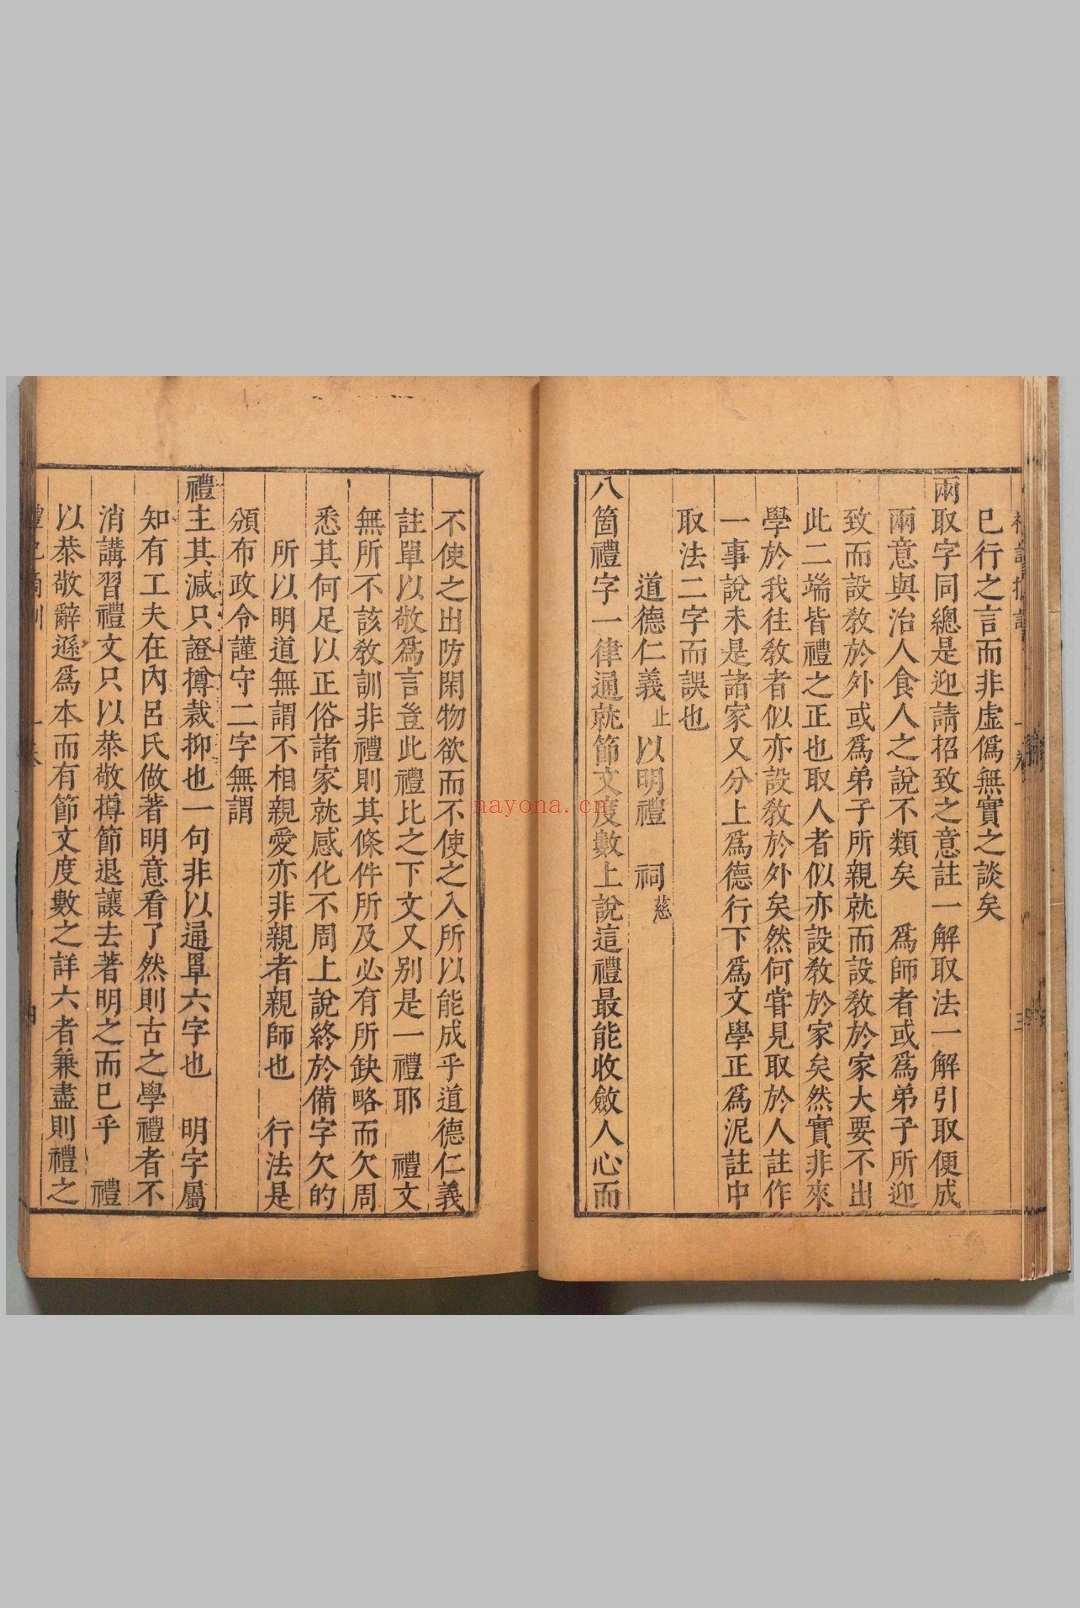 已行之言而非虛僞無實之談矣
兩取字同總是迎請招致之意註一解取法一解引取便成
兩意與治人食人之說不類矣 爲師者或爲弟子所迎
致而設敎於外或爲弟子所親就而設敎於家大要不出
此二端皆禮之正也取人者似亦設敎於家矣然實非來
學於我往敎者似亦設敎於外矣然何嘗見取於人註作
一事說未是諸家又分上爲德行下爲文學正爲泥註中
取法二字而誤也
道德仁義止以明禮 祠慈
八箇禮字一律通就節文度數上說這禮最能收斂人心而
不使之出防閑物欲而不使之入所以能成乎道德仁義
註單以敬爲言豈此禮比之下文又别是一禮耶 禮文
無所不該敎訓非禮則其條件所及必有所缺略而欠周
悉其何足以正俗諸家就感化不周上說終於備字欠的
所以明道無謂不相親愛亦非親者親師也 行法是
頒布政令謹守二字無謂
禮主其減只證撙裁抑也一句非以通單六字也 明字屬
知有工夫在內呂氏做著明意看了然則古之學禮者不
消講習禮文只以恭敬撙節退讓去著明之而已乎 禮
以恭敬辭遜爲本而有節文度數之詳六者兼盡則禮之
nayona.cn